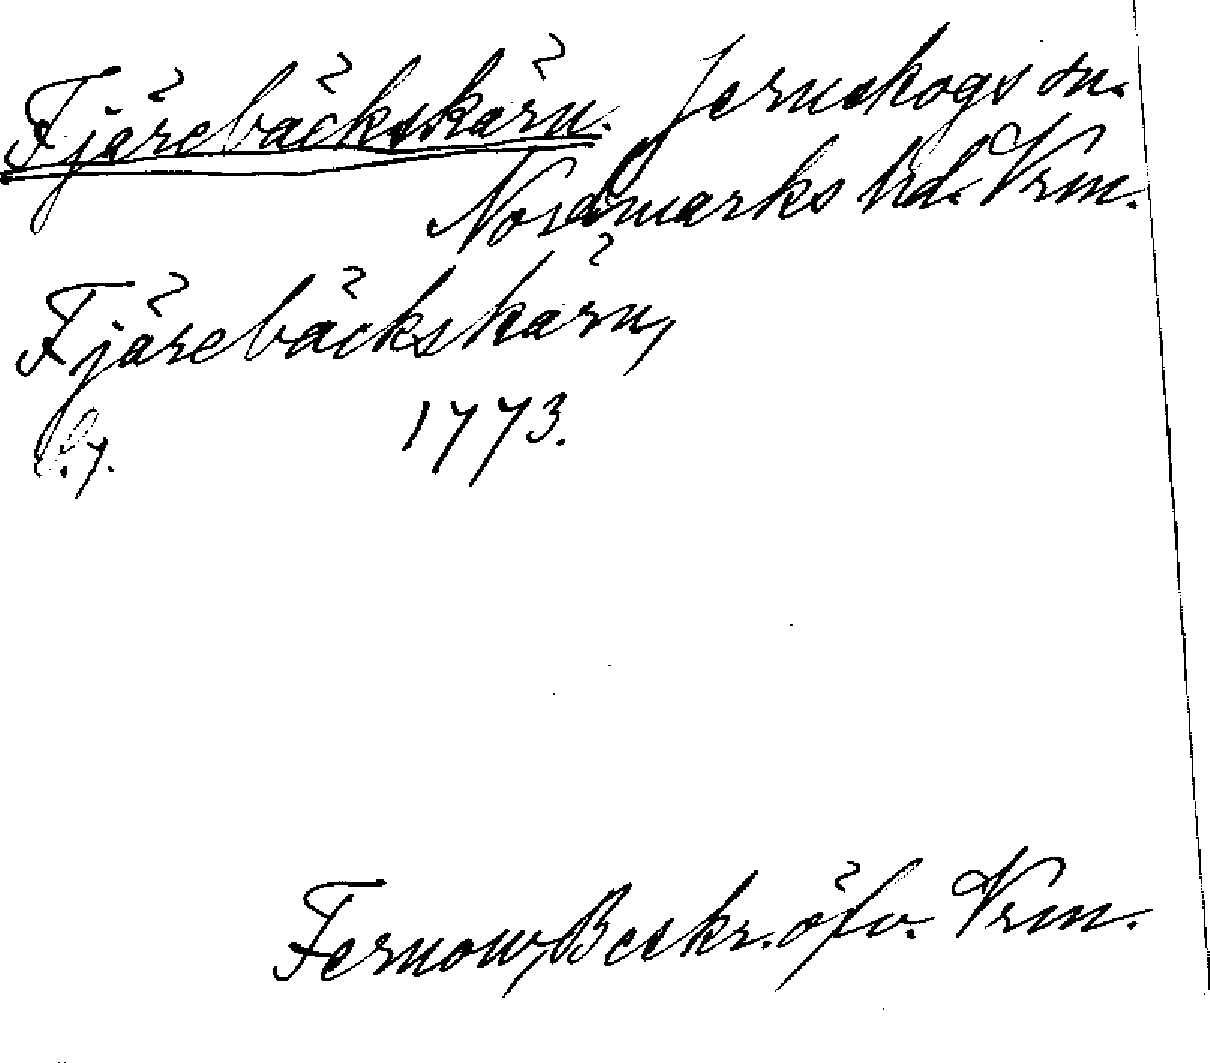 Fjärebäckskärn. Jernskogs sn.
Nordmarks hd. Vrm.
Fjärebäckskärn,
1773.
Fernow, Beskr. öfv. Vrm.